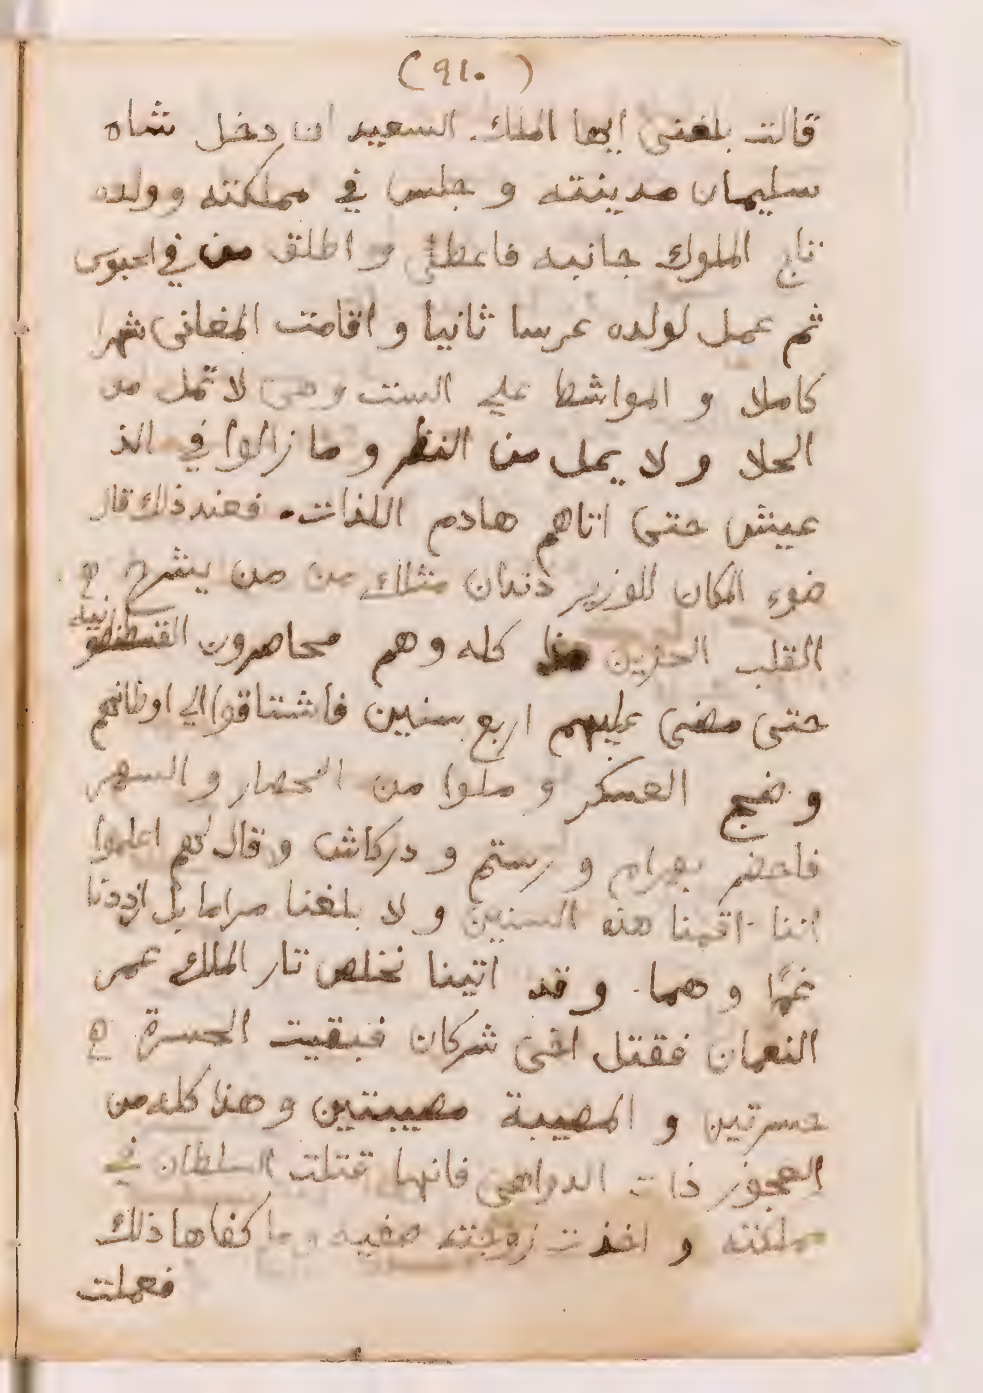 (٩١٠)
قالت بلغنى ايها الملك السعيد ان دخل شاه
سليمان مدينته و جلس في مملكته وولده
تاج الملوك جانبه فاعطى و اطلق من في الحبوس
ثم عمل لولده عرسا ثانيا و اقامت المغانى شهرا
كاملا و المواشط على الست وهى لا تمل من
الجلا و لا يمل من النظر و ما زالوا في الذ
عيش حتى اتاهم هادم اللذات. فعند ذلك قال
ضوء المكان للوزير دندان مثلك من من يشرح
القلب الحزين هذا كله وهم محاصرون القسطنطو نيه
حتى مضى عليهم اربع سنين فاشتاقوا الي اوطانهم
و ضج العسكر و ملوا من الحصار و السهر
فاحضر بهرام و رستم و دركاش و قال لهم اعلموا
اننا اقمنا هذه السنين و لا بلغنا مراما بل ازددنا
غمًا و هما. و قد اتينا نخلص تار الملك عمر
النعمان فقتل اخى شركان فبقيت الحسرة
حسرتين و المصيبة مصيبتين و هذا كله من
العجوز ذات الدواهى فانها قتلت السلطان في
مملكته و اخذت زوجته صفيه و ما كفاها ذلك
فعملت